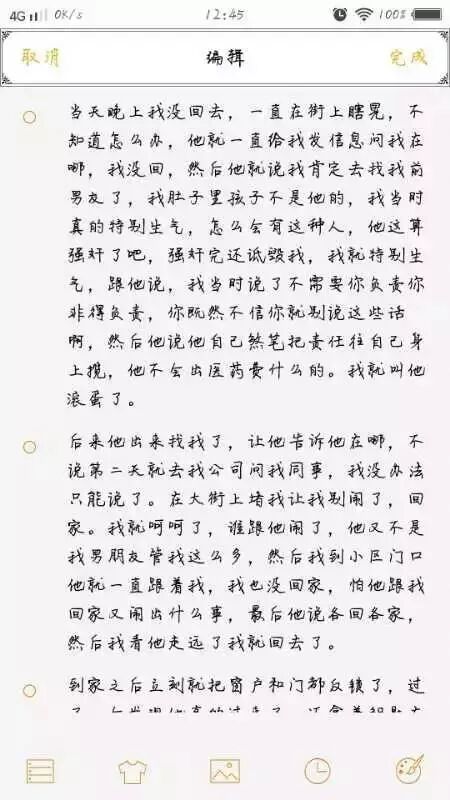 4G 0K/s 12:45 100%
取消 编辑 完成
当天晚上我没回去，一直在街上瞎晃，不
知道怎么办，他就一直给我发信息问我在
哪，我没回，然后他就说我肯定去找我前
男友了，我肚子里孩子不是他的，我当时
真的特别生气，怎么会有这种人，他这算
强奸了吧，强奸完还诋毁我，我就特别生
气，跟他说，我当时说了不需要你负责你
非得负责，你既然不信你就别说这些话
啊，然后他说他自己煞笔把责任往自己身
上揽，他不会出医药费什么的。我就叫他
滚蛋了。
后来他出来找我了，让他告诉他在哪，不
说第二天就去我公司问我同事，我没办法
只能说了。在大街上堵我让我别闹了，回
家。我就呵呵了，谁跟他闹了，他又不是
我男朋友管我这么多，然后我到小区门口
他就一直跟着我，我也没回家，怕他跟我
回家又闹出什么事，最后他说各回各家，
然后我看他走远了我就回去了。
到家之后立刻就把窗户和门都反锁了，过